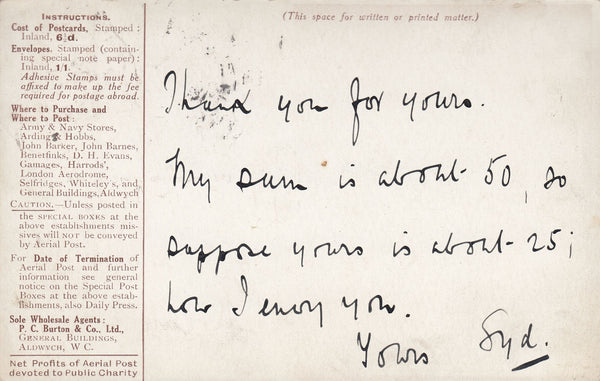 INSTRUCTIONS.
Cost of Postcards, Stamped :
Inland, 6d.
Envelopes. Stamped (contain-
ing special note paper):
Inland, 1/1.
Adhesive Stamps must be
affixed to make up the fee
required for postage abroad.
Where to Purchase and
Where to Post :
Army & Navy Stores,
Arding & Hobbs,
John Barker, John Barnes,
Benetfinks, D. H. Evans,
Gamages, Harrods',
London Aerodrome,
Selfridges, Whiteley's, and
General Buildings, Aldwych
CAUTION.—Unless posted in
the SPECIAL BOXES at the
above establishments mis-
sives will NOT be conveyed
by Aerial Post.
For Date of Termination of
Aerial Post and further
information see general
notice on the Special Post
Boxes at the above estab-
lishments, also Daily Press.
Sole Wholesale Agents :
P. C. Burton & Co., Ltd.,
GENERAL BUILDINGS,
ALDWYCH, W C.
Net Profits of Aerial Post
devoted to Public Charity
(This space for written or printed matter.)
Thank you for yours.
My sum is about 50, so
suppose yours is about 25;
how I envy you.
Yours Syd.